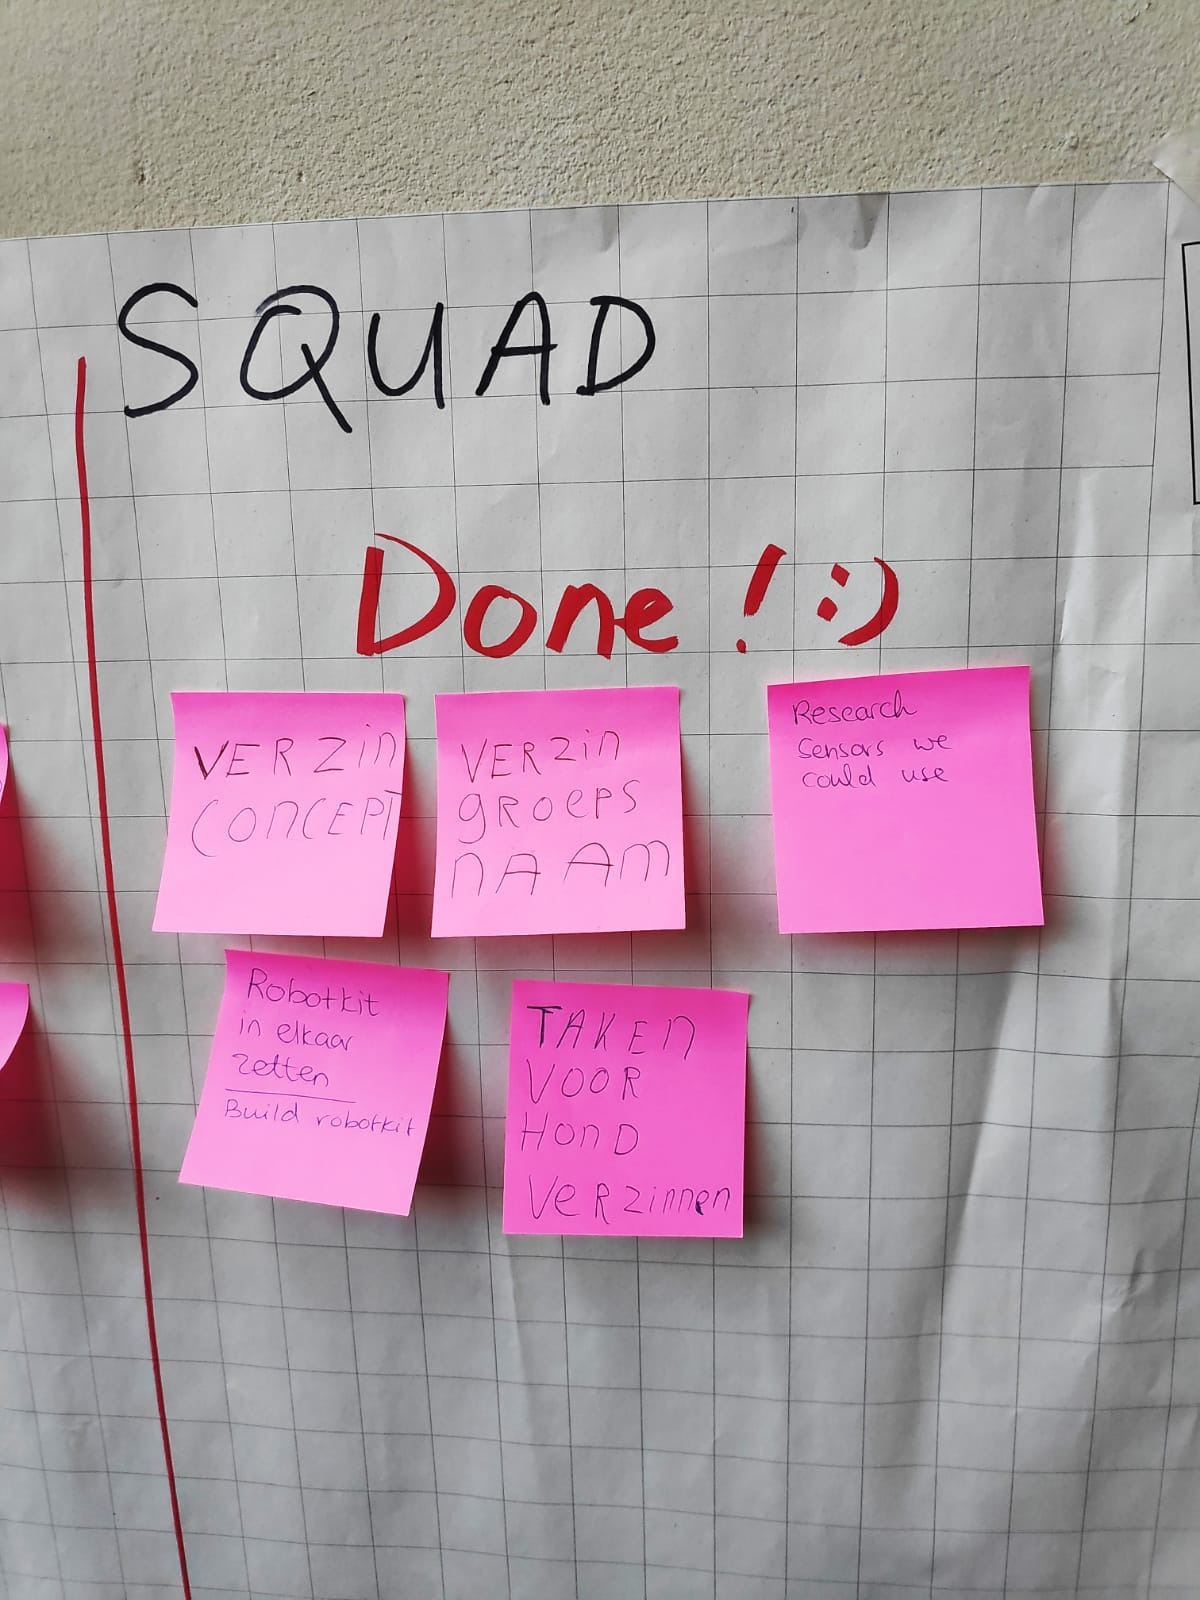 SQUAD
Done! :)
VERZin
CONCEPT
VERZin
gROEPS
nAAM
Research
Sensors we
could use
Robotkit
in elkaar
zetten
Build robotkit
TAKEn
VOOR
HonD
VeRzinnen